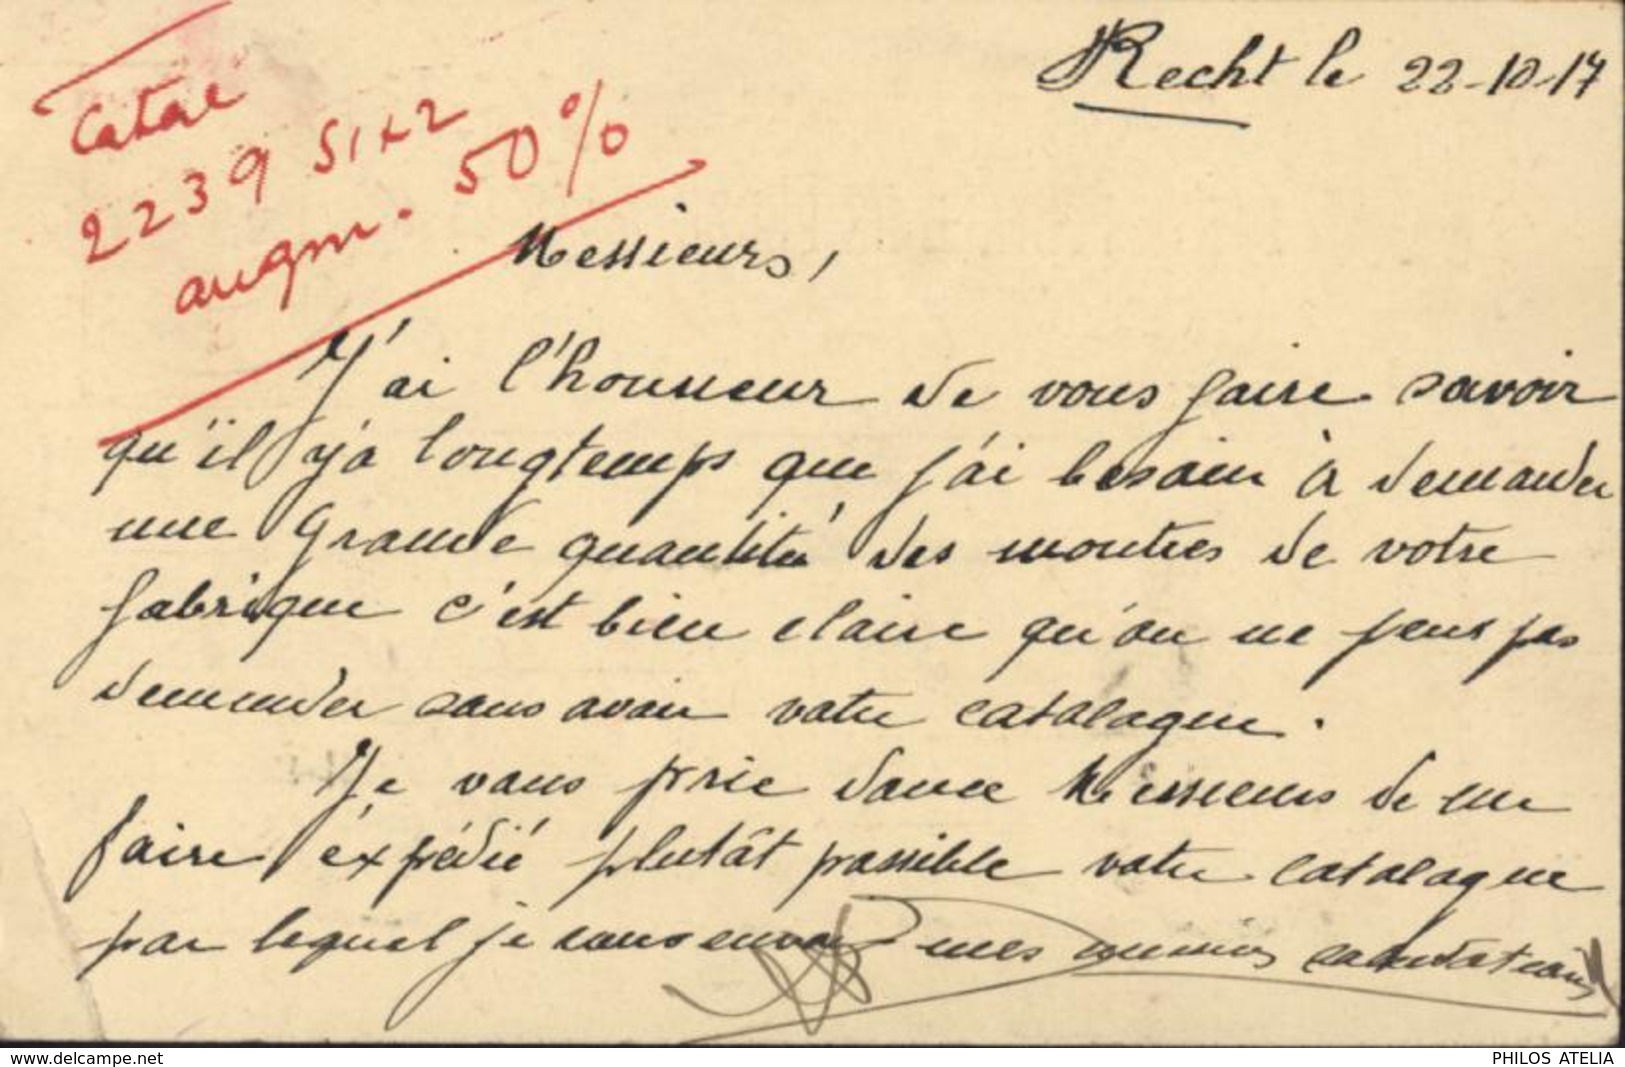 Recht le 22-10-17
Catal
2239 51x2
augm. 50%
Messieurs,
J'ai l'honneur de vous faire savoir
qu'il y'a longtemps que j'ai besoin à demander
une grande quantité des montres de votre
fabrique c'est bien claire qu'on ne peut pas
demander sans avoir votre catalogue.
Je vous prie donce Messieurs de me
faire éxpédié plutât possible votre catalogue
par lequel je vous envoy mes salutations
www.delcampe.net
PHILOS ATELIA